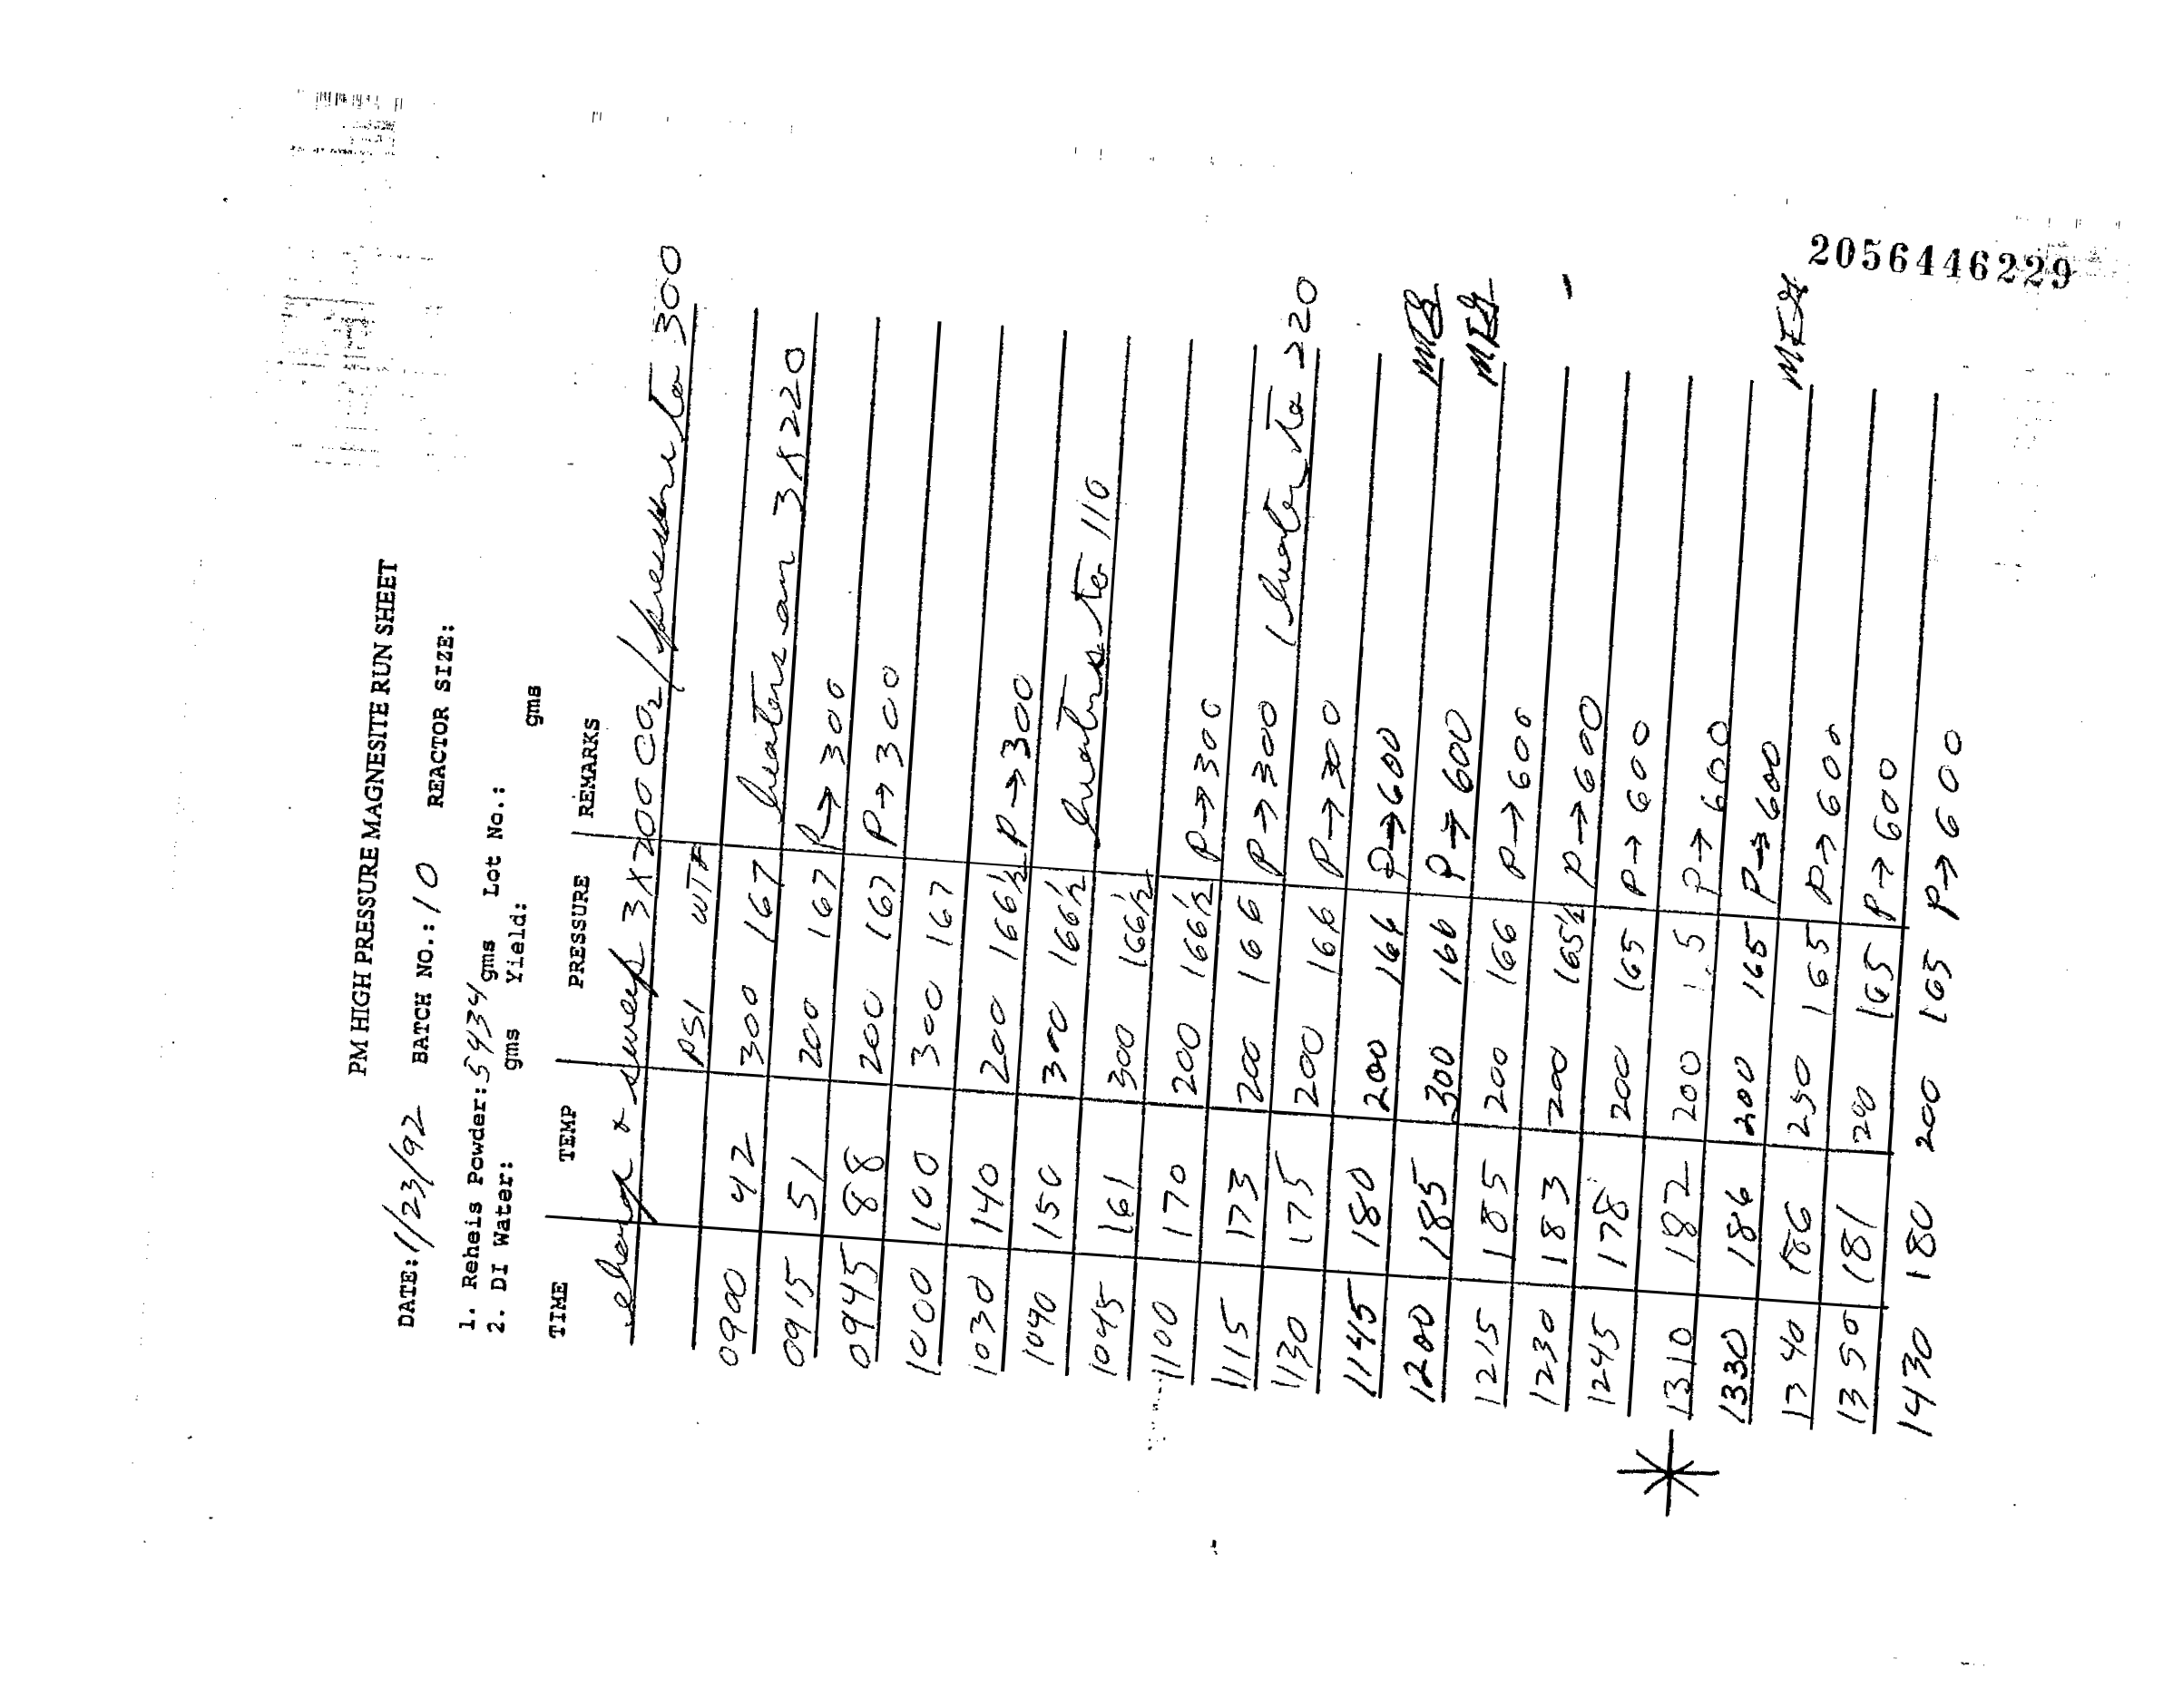 PM HIGH PRESSURE MAGNESITE RUN SHEET
DATE: 1/23/92 BATCH NO.: 10 REACTOR SIZE:
1. Reheis Powder: 5434 gms Lot No.:
2. DI Water: gms Yield: gms
TIME TEMP PRESSURE REMARKS
charge & sweep 3X200 CO2 / pressure to 300
PSI WTF
0900 42 300 167 heaters on 3 220
0915 51 200 167 P→300
0945 88 200 167 P→300
1000 100 300 167
1030 140 200 166½ P→300
1040 150 300 166½ heaters to 110
1045 161 300 166½
1100 170 200 166½ P→300
1115 173 200 166 P→300 (heater to 220
1130 175 200 166 P→300
1145 180 200 166 P→600
1200 185 300 166 P→600
1215 185 200 166 P→600
1230 183 200 165½ P→600
1245 178 200 165 P→600
1310 182 200 P→600
1330 186 200 165 P→600
1340 186 165 P→600
1350 181 200 165 P→600
1430 180 200 165 P→600
2056446229